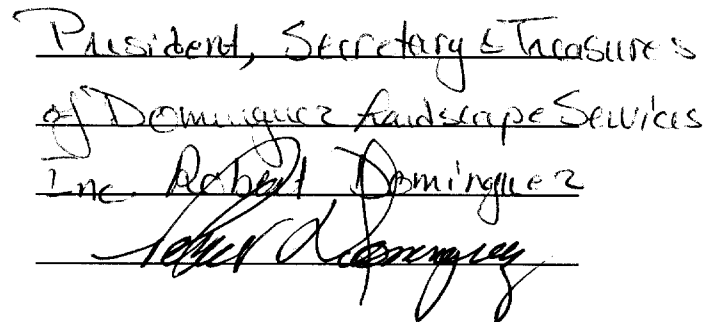 President, Secretary & Treasures
of Dominguez Landscape Services
Inc. Robert Dominguez
Robert Dominguez